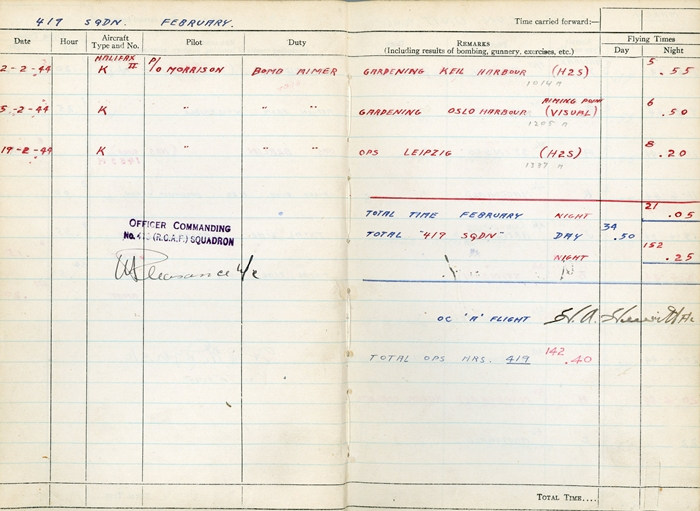 419 SQDN. FEBRUARY.
Time carried forward:—
Date Hour Aircraft Type and No. Pilot Duty REMARKS (Including results of bombing, gunnery, exercises, etc.) Flying Times Day Night
2-2-44 HALIFAX II K P/O MORRISON BOMB AIMER GARDENING KEIL HARBOUR (H2S) 5 .55
1014 m
5-2-44 K " " " GARDENING OSLO HARBOUR AIMING POINT (VISUAL) 6 .50
1205 m
19-2-44 K " " " OPS LEIPZIG (H2S) 8 .20
1337 m
TOTAL TIME FEBRUARY NIGHT 21 .05
TOTAL "419 SQDN" DAY 34 .50
NIGHT 152 .25
OFFICER COMMANDING
No. 419 (R.C.A.F.) SQUADRON
Pleasance W/C
OC 'A' FLIGHT
TOTAL OPS HRS. 419 142 .40
TOTAL TIME....